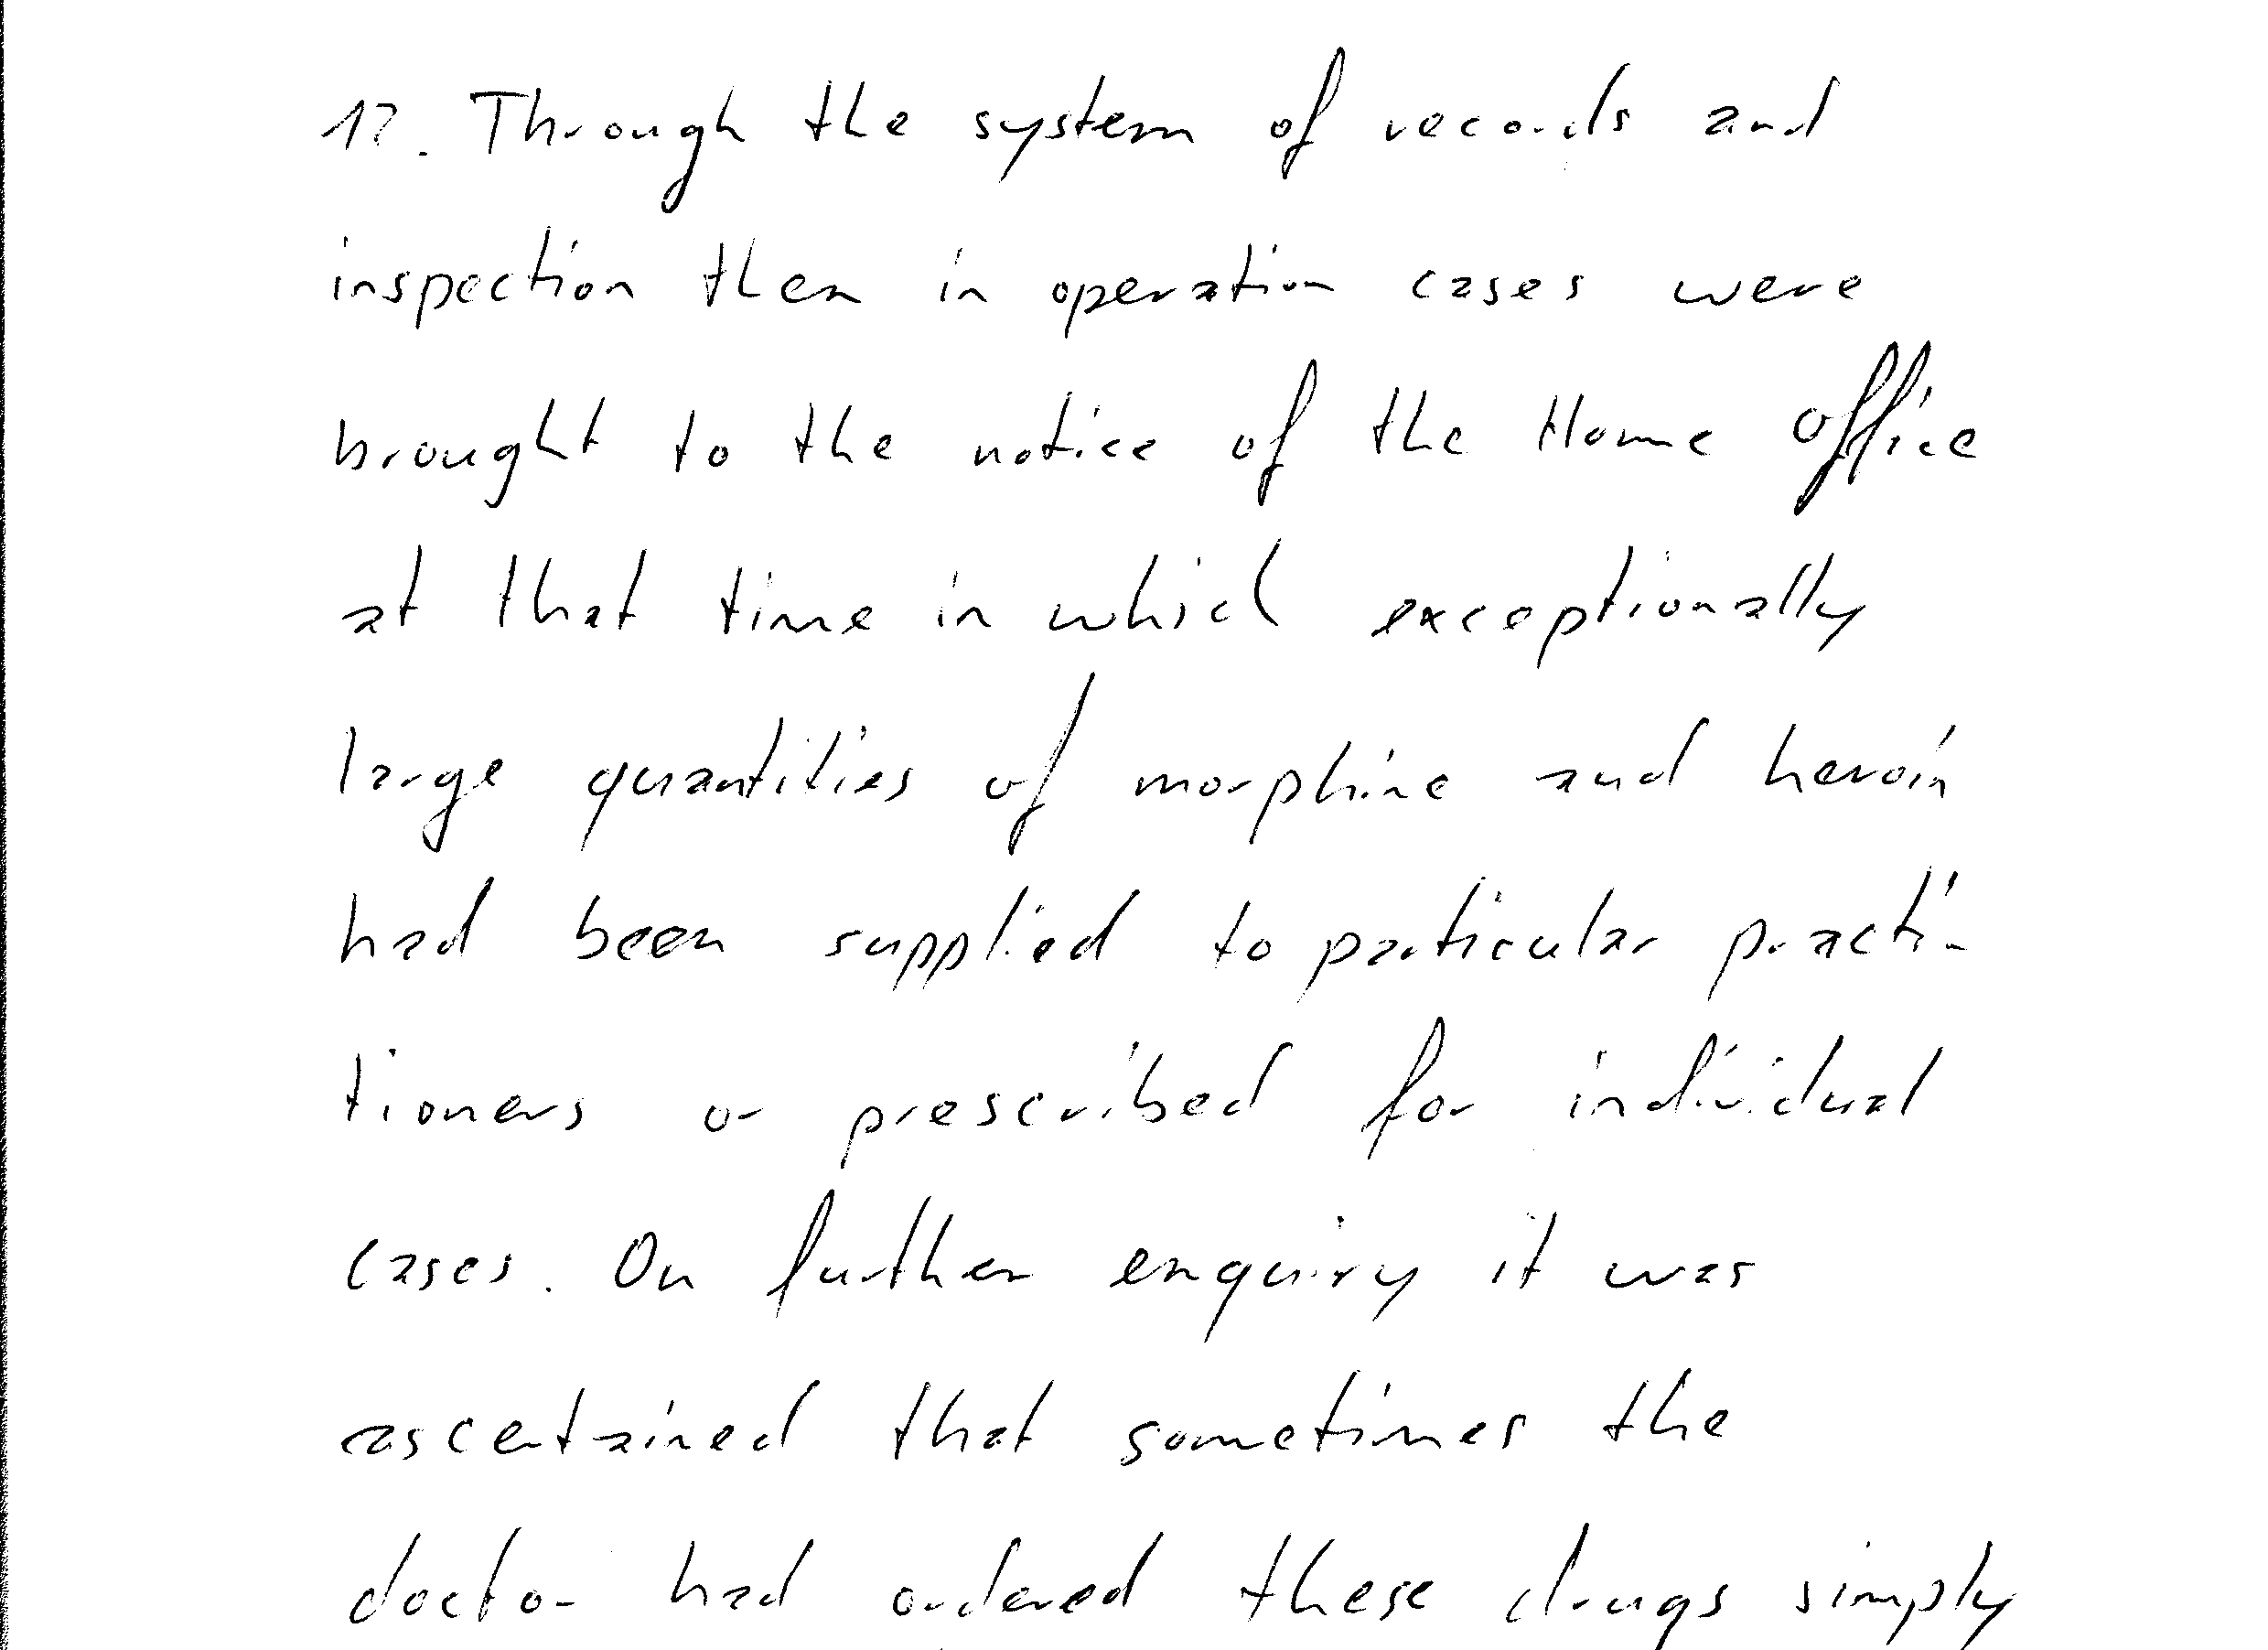 17. Through the system of records and
inspection then in operation cases were
brought to the notice of the Home Office
at that time in which exceptionally
large quantities of morphine and heroin
had been supplied to particular practi-
tioners or prescribed for individual
cases. On further enquiry it was
ascertained that sometimes the
doctor had ordered these drugs simply